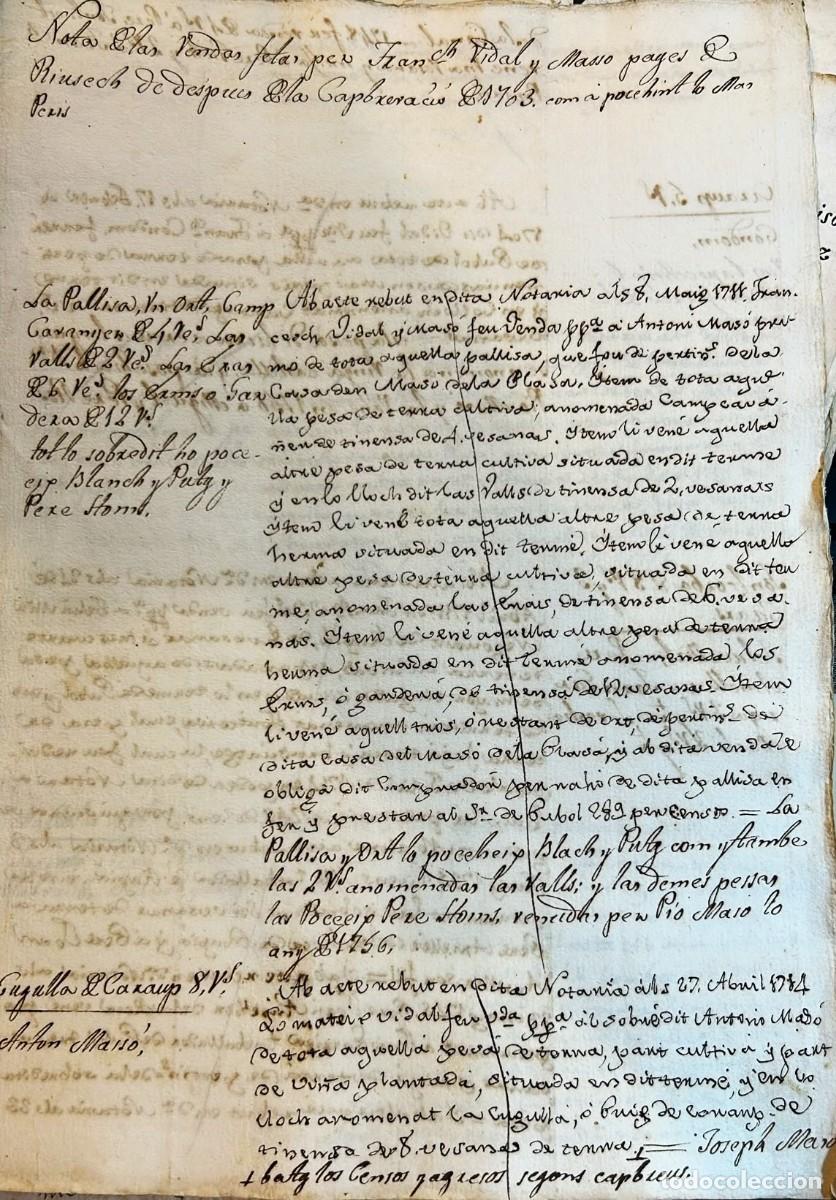 Nota de las Vendas fetas per Franch Vidal y Masso pages de
Riusech de despues de la Capbrevació de 1703. com á pocehint lo Mas
Peris
La Pallisa, Un Ort, Camp
Caranyen de 4 Ves. Las
Valls de 2 Ves. Las Eras
de 6 Ves. los Erms o Gar
dera de 12 Vs.
tot lo sobredit ho poce-
eix Blanch y Putg y
Pere Homs.
Ab acte rebut en dita Notaria als 8, Maig 1711. Fran-
cesch Vidal y Masó feu Venda ppa. á Antoni Masó pri-
mo de tota aquella pallisa, que fou de pertins. de la
Casa den Masó de la Plasa. Ytem de tota aque
lla pesa de terra cultiva, anomenada Camp cara-
ñen de tinensa de 4. vesanas. Ytem li vené aquella
altre pesa de terra cultiva situada en dit terme
y en lo lloch dit las Valls de tinensa de 2, vesanas
Ytem li vené tota aquella altre pesa de terra
herma situada en dit terme. Ytem li vené aquella
altre pesa de terra cultiva, situada en dit ter
me, anomenada las Erais, de tinensa de 6. vesa-
nas. Ytem li vené aquella altre pesa de terra
herma situada en dit terme anomenada los
Erms, ó garderá, de tinensa de 12, vesanas. Ytem
li vené aquell tros, ó restant de ort, de pertins. de
dita Casa del Masó de la Plasa, y ab dita venda se
obligá dit Comprador per rahó de dita pallisa en
fer y prestar al Sr. de Pubol 2 ß 9 per Censo. = La
Pallisa y Ort lo poceheix Blach y Putg com y tambe
las 2 Vs. anomenadas las Valls; y las demes pessas
las Poceeix Pere Homs, venudas per Pio Maso lo
any de 1756,
Cugulla de Caraup 8, Vs.
Anton Massó,
Ab acte rebut en dita Notaria áls 27, Abril 1714
Lo mateix Vidal feu vda. ppa. ál sobredit Antonio Masó
de tota aquella pesa de terra, part cultiva y part
de viña plantada, situada en dit terme, y en lo
lloch anomenat la Cugulla, ó Puig de Caraup. de
tinensa de 8. vesanas de terra. = Joseph Maso
+ batg los Censos y agresos segons capbreus.
todocoleccion